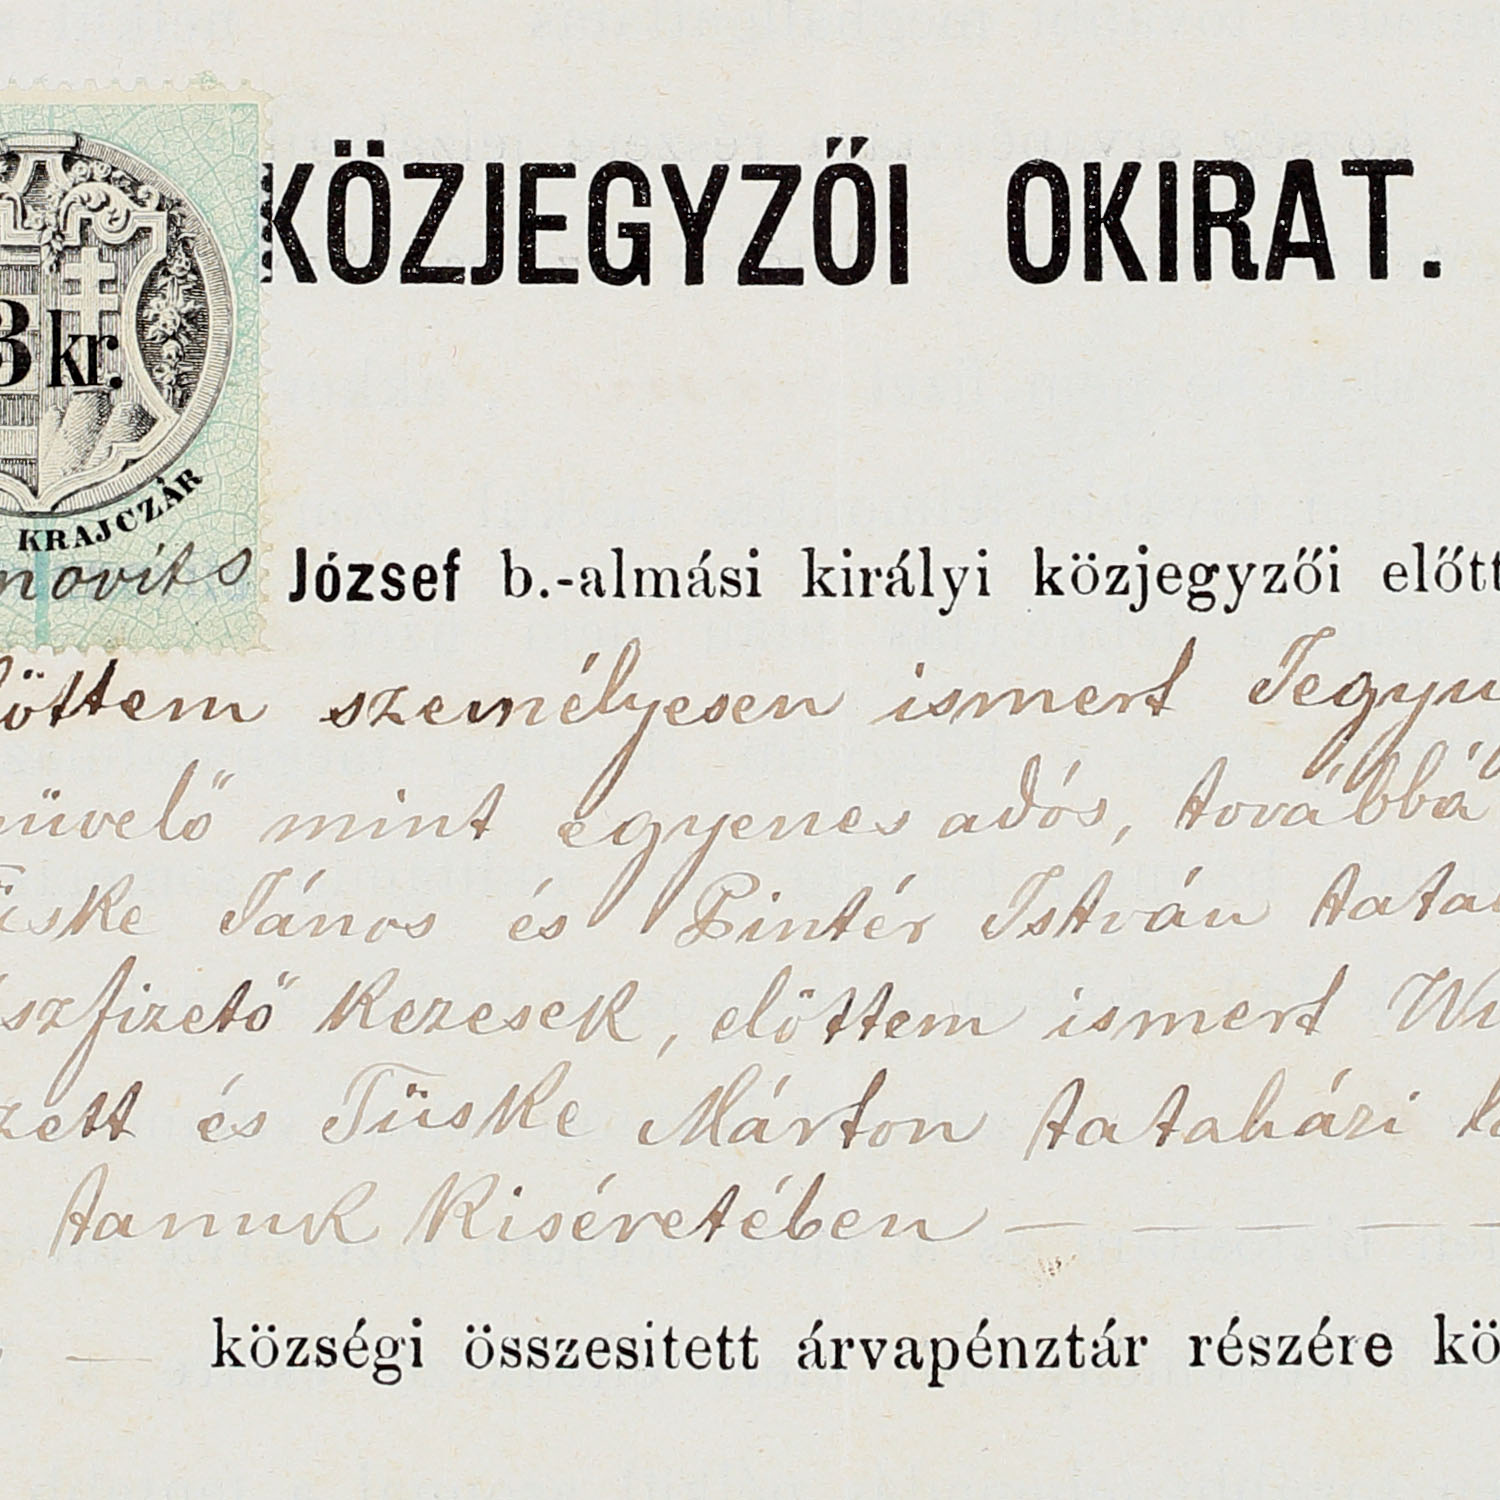 KÖZJEGYZŐI OKIRAT.
3 kr.
KRAJCZÁR
novits József b.-almási királyi közjegyzői előtt
löttem személyesen ismert Jegyu
müvelő mint egyenes adós, továbbá
üske János és Pintér István tata
szfizető kezesek, előttem ismert Wu
zett és Tüske Márton tataházi la
tanuk kiséretében — — — —
— községi összesitett árvapénztár részére kö